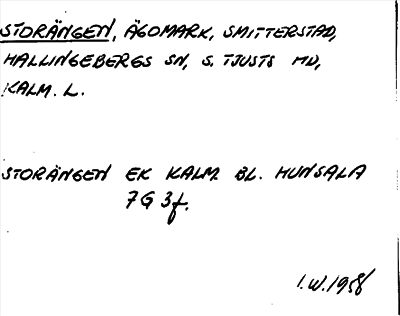 STORÄNGEN, ÄGOMARK, SMITTERSTAD,
HALLINGEBERGS SN, S. TJUSTS HD,
KALM. L.
STORÄNGEN EK KALM. BL. HUNSALA
7G 3f.
I.W. 1958